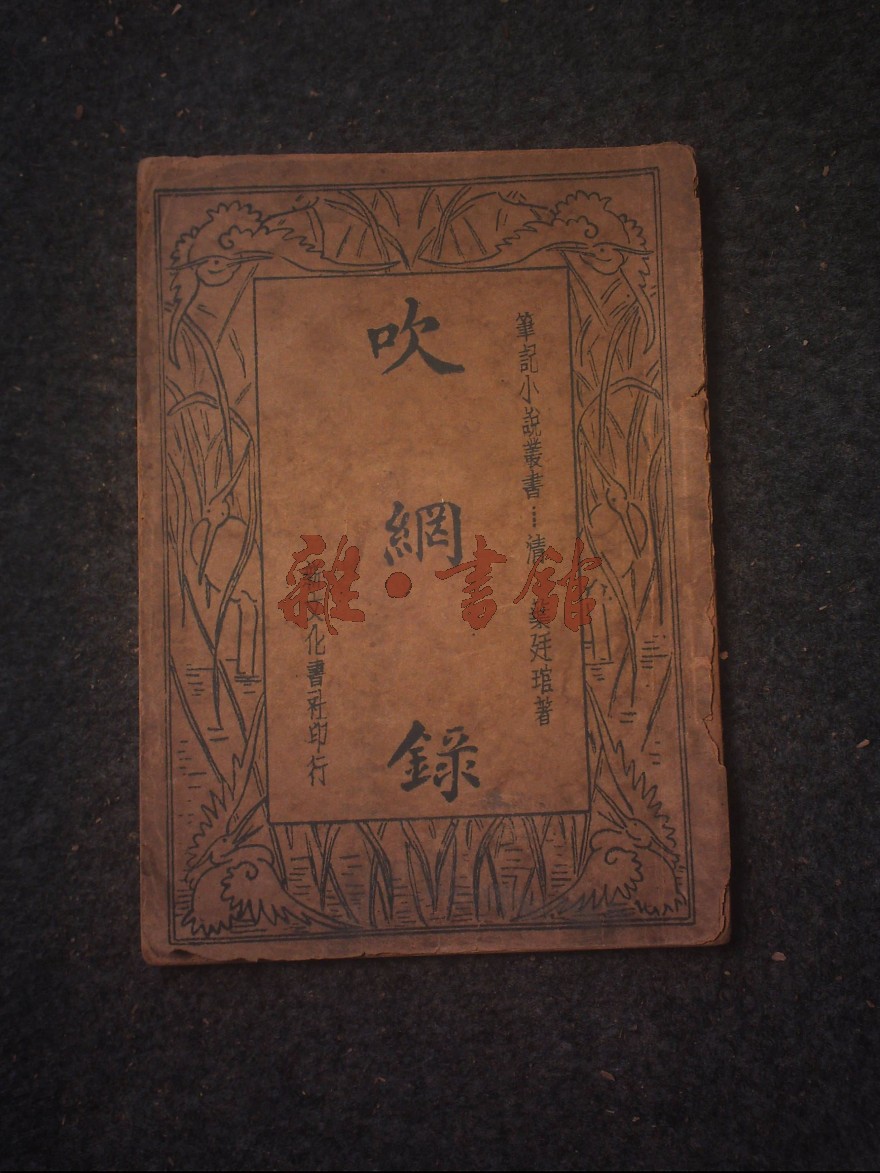 筆記小說叢書⋮清 葉廷琯著
吹網錄
新文化書社印行
雜·書館